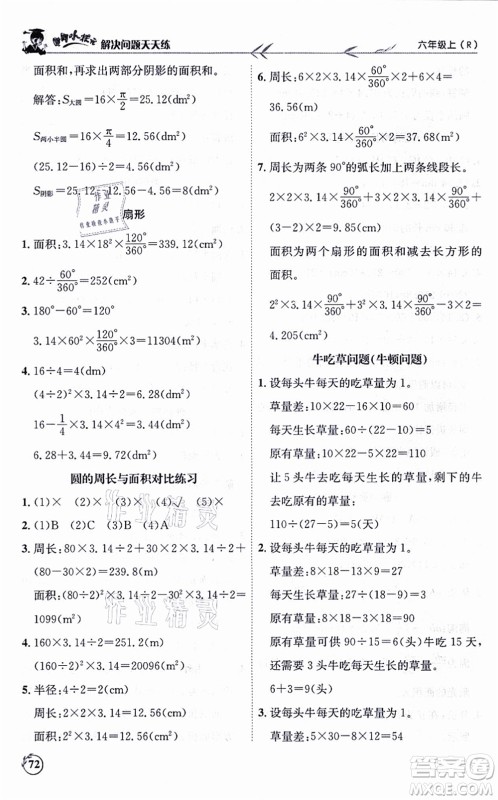 黄冈小状元 解决问题天天练
六年级上(R)
面积和,再求出两部分阴影的面积和。
解答:S大圆=16×π/2=25.12(dm²)
S两小半圆=16×π/4=12.56(dm²)
(25.12-16)÷2=4.56(dm²)
S阴影=25.12-12.56+
扇形
1. 面积:3.14×18²×120°/360°=339.12(cm²)
2. 42÷60°/360°=252(cm²)
3. 180°-60°=120°
3.14×60²×120°/360°×3=11304(m²)
4. 16÷4=4(dm)
(4÷2)×2×3.14÷2=6.28(dm²)
16-1/4×3.14×4²=3.44(dm²)
6.28+3.44=9.72(dm²)
圆的周长与面积对比练习
1. (1)× (2)× (3)× (4)√ (5)×
2. (1)B (2)A (3)B
3. 周长:80×3.14÷2+(3.5×2)×3.14÷
面积:80×3.14÷2×(3.5×2)+
1099(m²)
4. 160×3.14÷2=80(m)
3.14×(160÷2)²=20096(m²)
5. 半径:4÷2=2(dm)
周长:4×3.14÷2+4=10.28(dm)
面积:3.14×2²÷2=6.28(dm²)
72
6. 周长:6×2×3.14×60°/360°×3+6×3=
36.56(m)
面积:6²×3.14×60°/360°×2=37.68(m²)
7. 周长为两条90°的弧长加上两条线段长。
面积为两个扇形的面积和减去长方形的面积。
4.205(cm²)
牛吃草问题(牛顿问题)
1. 设每头牛每天的吃草量为1。
草量差:10×22-16×10=60
每天生长的草量:60÷(22-10)=5
原有草量:10×22-5×22=110
让5头牛去吃每天生长的草量,剩下的牛去吃原有的草量:
110÷(27-5)=5(天)
2. 设每头牛每天的吃草量为1。
草量差:8×18-13×9=27
每天生长的草量:27÷(18-9)=3
原有草量:8×18-3×18=90
原有草量可供90÷15=6(头)牛吃15天,还需要3头牛吃每天生长的草量。
6+3=9(头)
3. 设每头牛每天的吃草量为1。
草量差:5×30-8×12=54
作业精灵
作业精灵